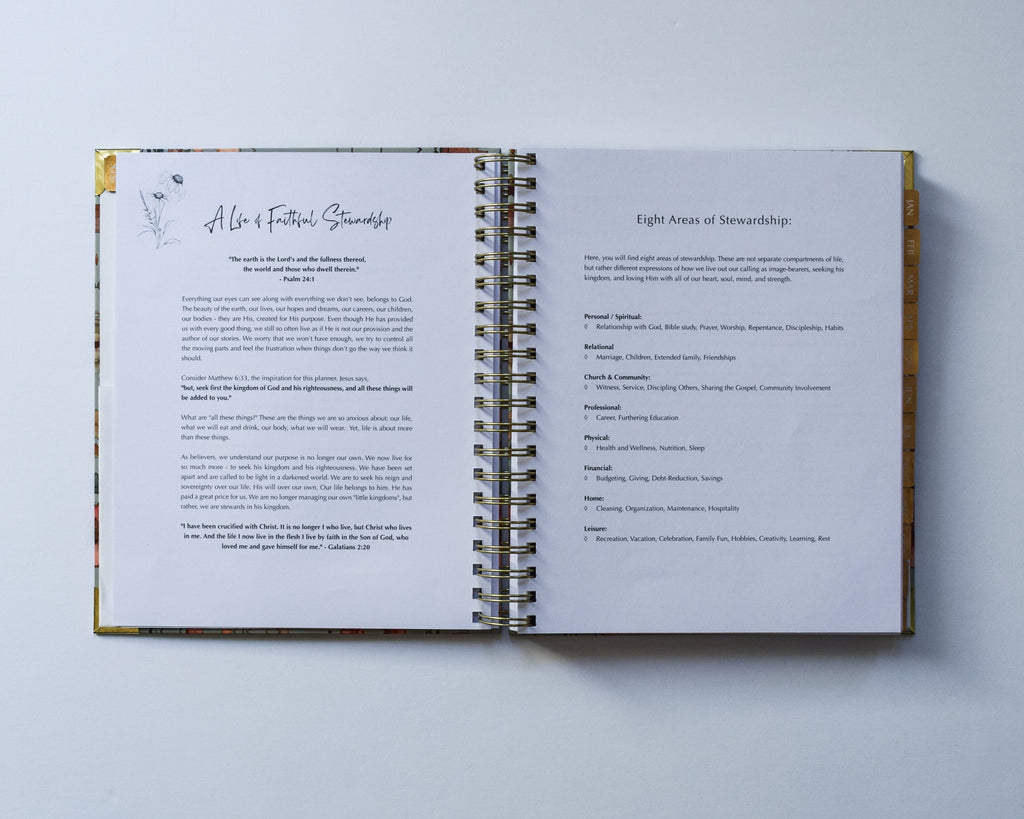 A Life of Faithful Stewardship
"The earth is the Lord's and the fullness thereof,
the world and those who dwell therein."
- Psalm 24:1
Everything our eyes can see along with everything we don't see, belongs to God.
The beauty of the earth, our lives, our hopes and dreams, our careers, our children,
our bodies - they are His, created for His purpose. Even though He has provided
us with every good thing, we still so often live as if He is not our provision and the
author of our stories. We worry that we won't have enough, we try to control all
the moving parts and feel the frustration when things don't go the way we think it
should.
Consider Matthew 6:33, the inspiration for this planner. Jesus says,
"but, seek first the kingdom of God and his righteousness, and all these things will
be added to you."
What are "all these things?" These are the things we are so anxious about: our life,
what we will eat and drink, our body, what we will wear. Yet, life is about more
than these things.
As believers, we understand our purpose is no longer our own. We now live for
so much more - to seek his kingdom and his righteousness. We have been set
apart and are called to be light in a darkened world. We are to seek his reign and
sovereignty over our life. His will over our own. Our life belongs to him. He has
paid a great price for us. We are no longer managing our own "little kingdoms", but
rather, we are stewards in his kingdom.
"I have been crucified with Christ. It is no longer I who live, but Christ who lives
in me. And the life I now live in the flesh I live by faith in the Son of God, who
loved me and gave himself for me." - Galatians 2:20
Eight Areas of Stewardship:
Here, you will find eight areas of stewardship. These are not separate compartments of life,
but rather different expressions of how we live out our calling as image-bearers, seeking his
kingdom, and loving Him with all of our heart, soul, mind, and strength.
Personal / Spiritual:
◊ Relationship with God, Bible study, Prayer, Worship, Repentance, Discipleship, Habits
Relational
◊ Marriage, Children, Extended family, Friendships
Church & Community:
◊ Witness, Service, Discipling Others, Sharing the Gospel, Community Involvement
Professional:
◊ Career, Furthering Education
Physical:
◊ Health and Wellness, Nutrition, Sleep
Financial:
◊ Budgeting, Giving, Debt-Reduction, Savings
Home:
◊ Cleaning, Organization, Maintenance, Hospitality
Leisure:
◊ Recreation, Vacation, Celebration, Family Fun, Hobbies, Creativity, Learning, Rest
JAN
FEB
MAR
JUN